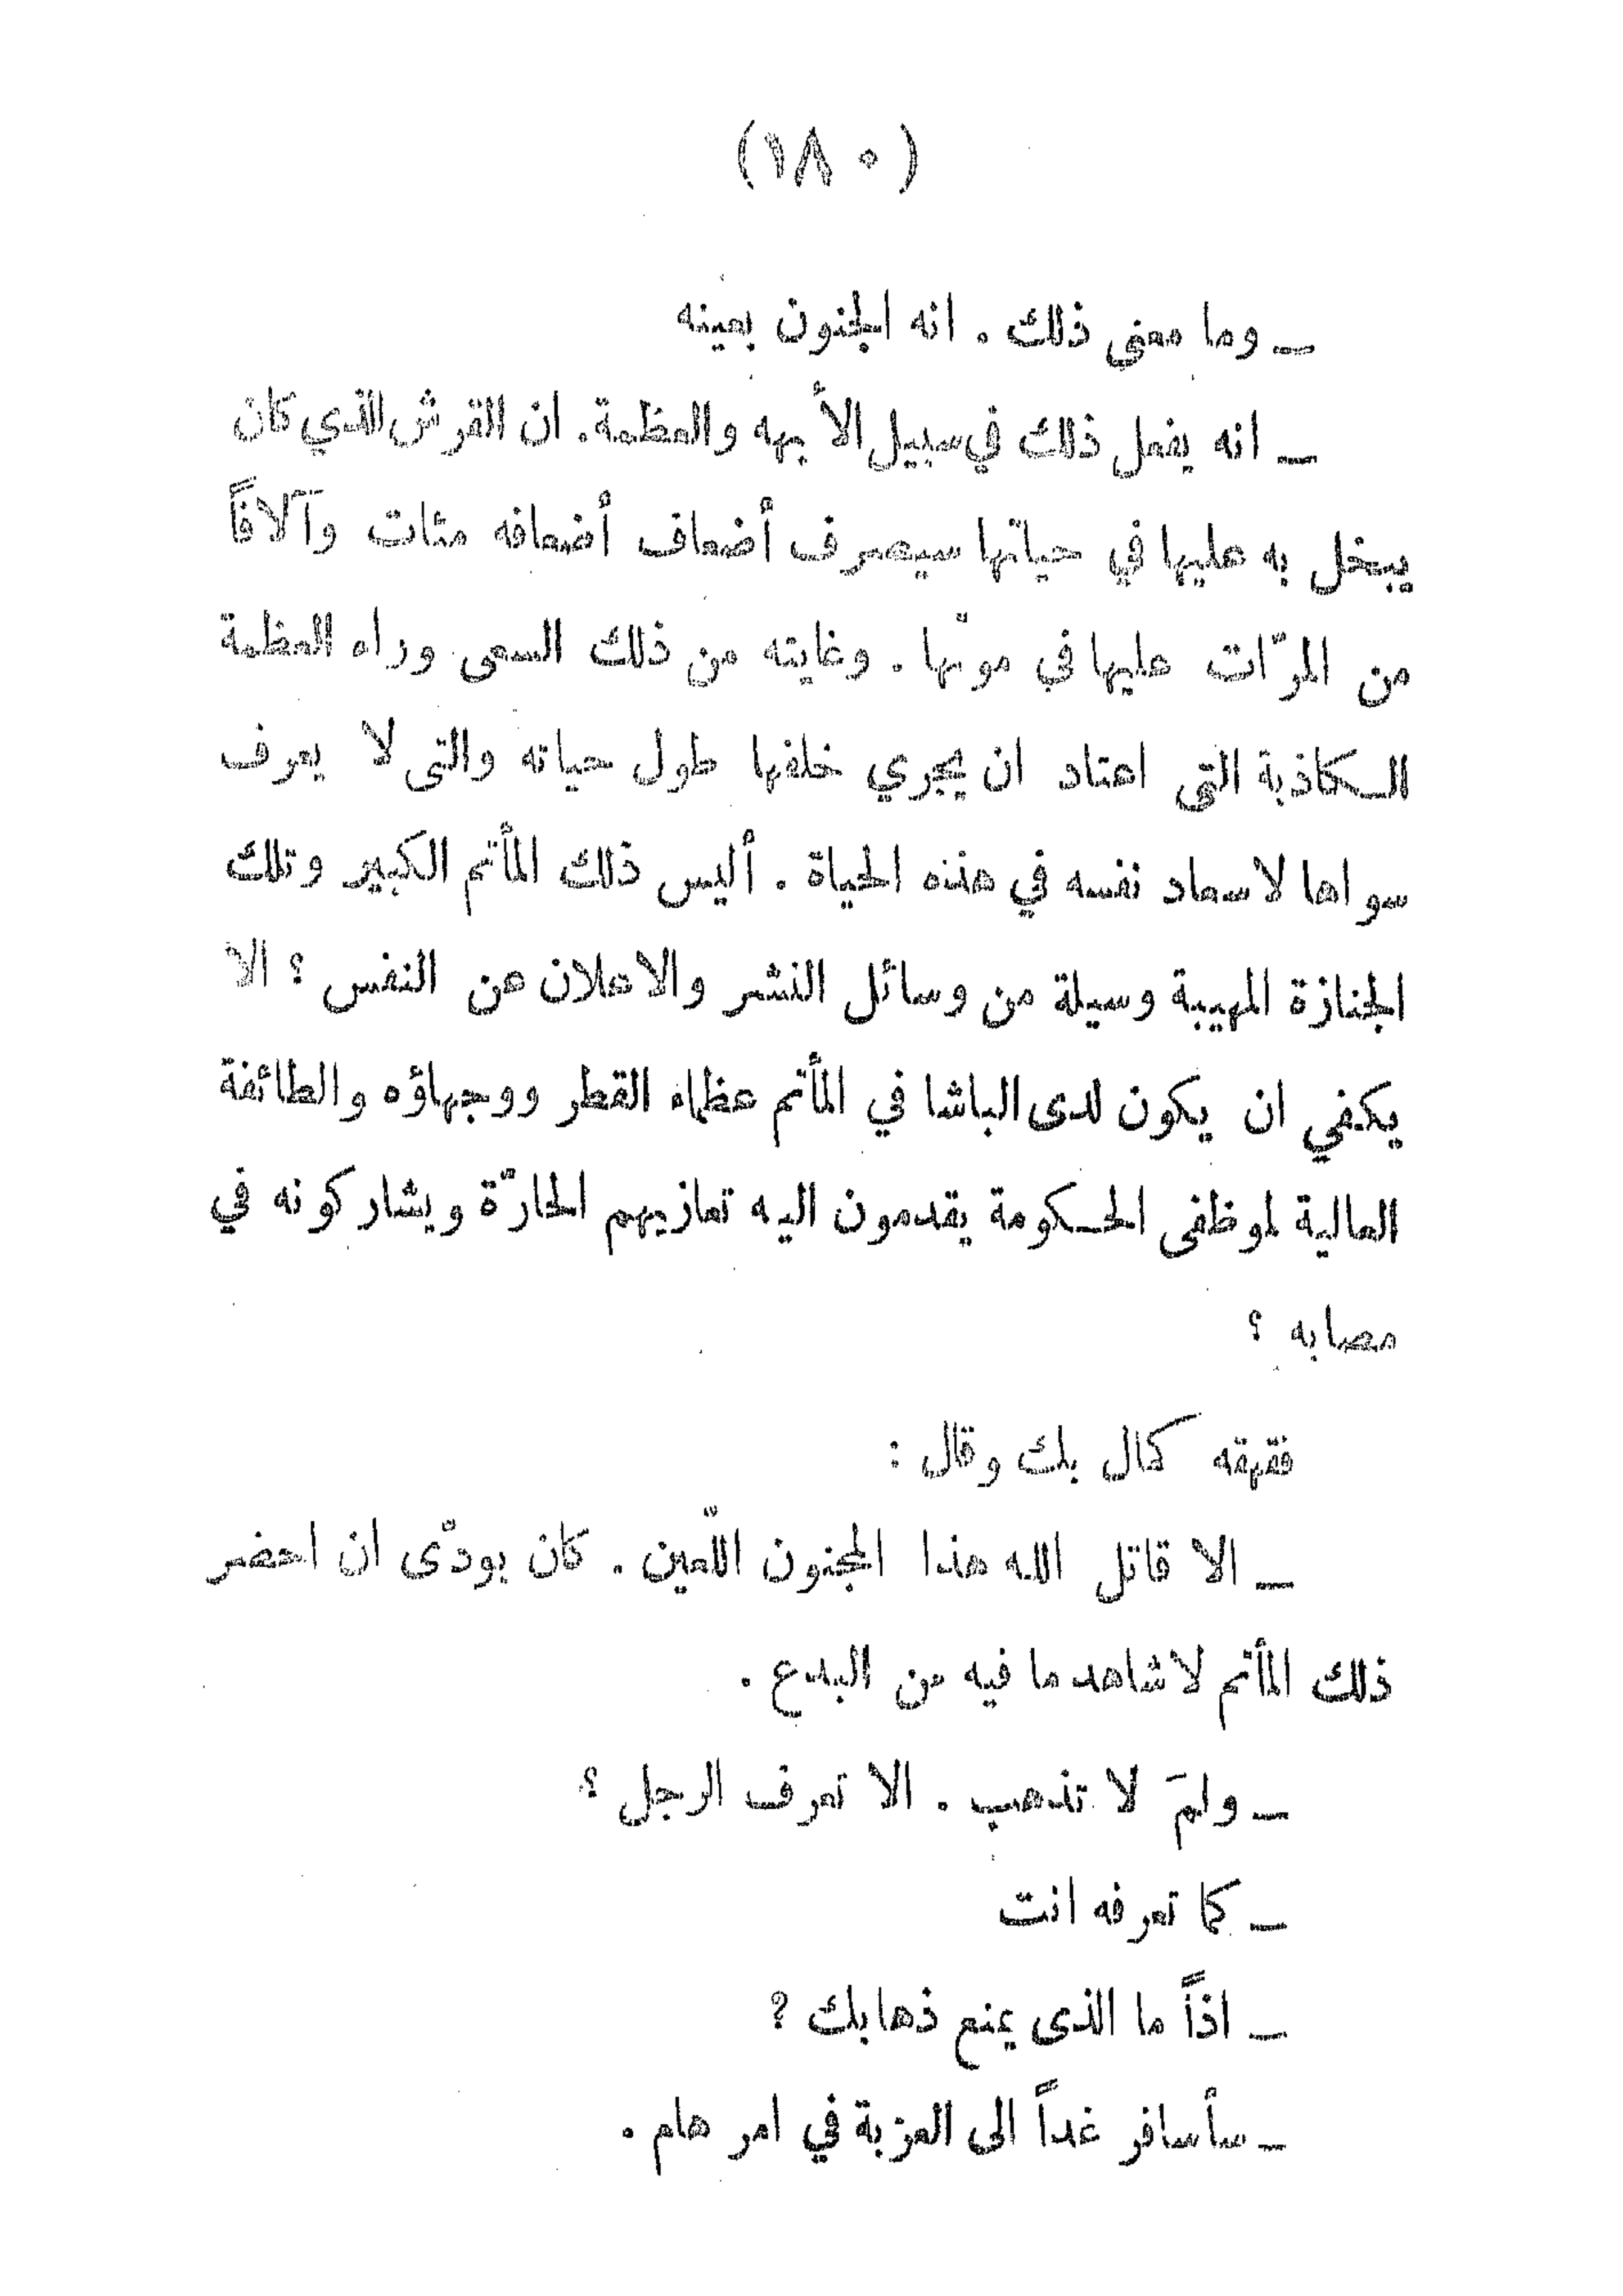 (١٨٠)
ـ وما معنى ذلك . انه الجنون بعينه
ـ انه يفعل ذلك في سبيل الأبهه والعظمة. ان القرش الذي كان
يبخل به عليها في حياتها سيصرف أضعاف أضعافه مئات وآلافاً
من المرّات عليها في موتها . وغايته من ذلك السعى وراء العظمة
الكاذبة التي اعتاد ان يجري خلفها طول حياته والتى لا يعرف
سواها لاسعاد نفسه في هذه الحياة . أليس ذلك المأتم الكبير وتلك
الجنازة المهيبة وسيلة من وسائل النشر والاعلان عن النفس ؟ الا
يكفي ان يكون لدى الباشا في المأتم عظماء القطر ووجهاؤه والطائفة
العالية لموظفى الحكومة يقدمون اليه تعازيهم الحارّة ويشاركونه في
مصابه ؟
فقهقه كمال بك وقال :
ـ الا قاتل الله هذا المجنون اللّعين . كان بودّى ان احضر
ذلك المأتم لاشاهد ما فيه من البدع .
ـ ولمَ لا تذهب . الا تعرف الرجل ؟
ـ كما تعرفه انت
ـ اذاً ما الذى يمنع ذهابك ؟
ـ سأسافر غداً الى العزبة في امر هام .